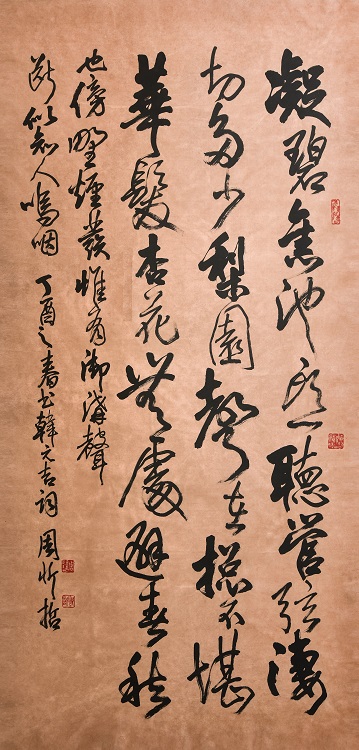 凝碧舊池頭一聽管弦淒
切多少梨園聲在揔不堪
華髮杏花無處避春愁
也傍野煙發惟有御溝聲
斷似知人嗚咽 丁酉之春書韓元吉詞 周忻哲